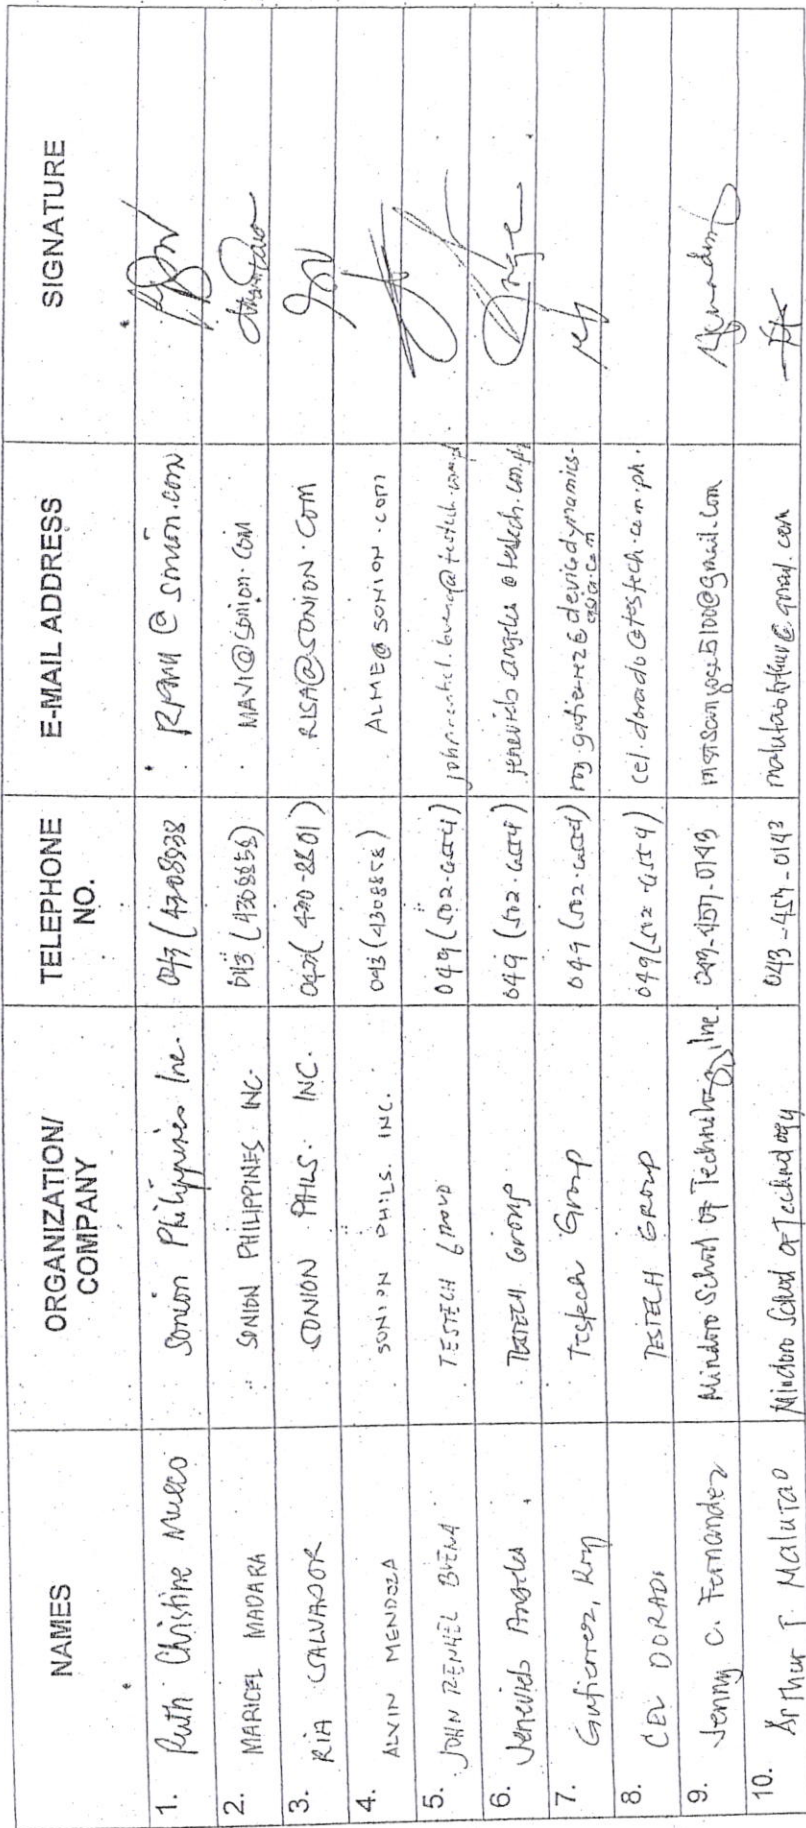 NAMES ORGANIZATION/ COMPANY TELEPHONE NO. E-MAIL ADDRESS SIGNATURE
1. Ruth Christine Sonion Philippines Inc. 043 (4308938 @ sonion.com
2. MARICEL MADARA SONION PHILIPPINES INC. 043 (4308858) MAVI@sonion.com
3. RIA SALVADOR SONION PHILS. INC. 043( 430-8801) RISA@SONION.COM
4. ALVIN MENDOZA SONION PHILS. INC. 043 (4308858) ALME@SONION.COM
5. JOHN RENHEL BUENA TESTECH GROUP 049 (502-6554)
6. Jeneviel Angeles TESTECH Group 049 (502-6554)
7. Gutierrez, Roy Testech Group 049 (502-6554) roy.gutierrez@devicedynamics-asia.com
8. CEL DORADO TESTECH GROUP 049(502-6554) cel.dorado@testech.com.ph.
9. Jenny C. Fernandez Mindoro School of Technology, Inc. 043-457-0143
10. Arthur T. Malutao Mindoro School of Technology 043-457-0143